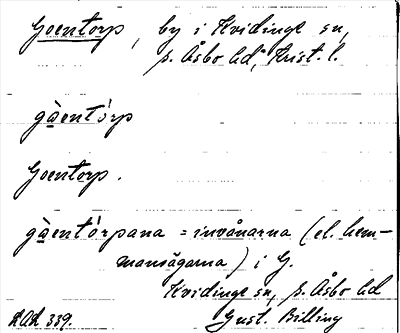 Goentorp, by i Kvidinge sn,
s. Åsbo hd, Krist. l.
gàentórp
Goentorp.
gàentórpana = invånarna (el. hem-
mansägarna) i G.
Kvidinge sn, s. Åsbo hd
Gust. Billing